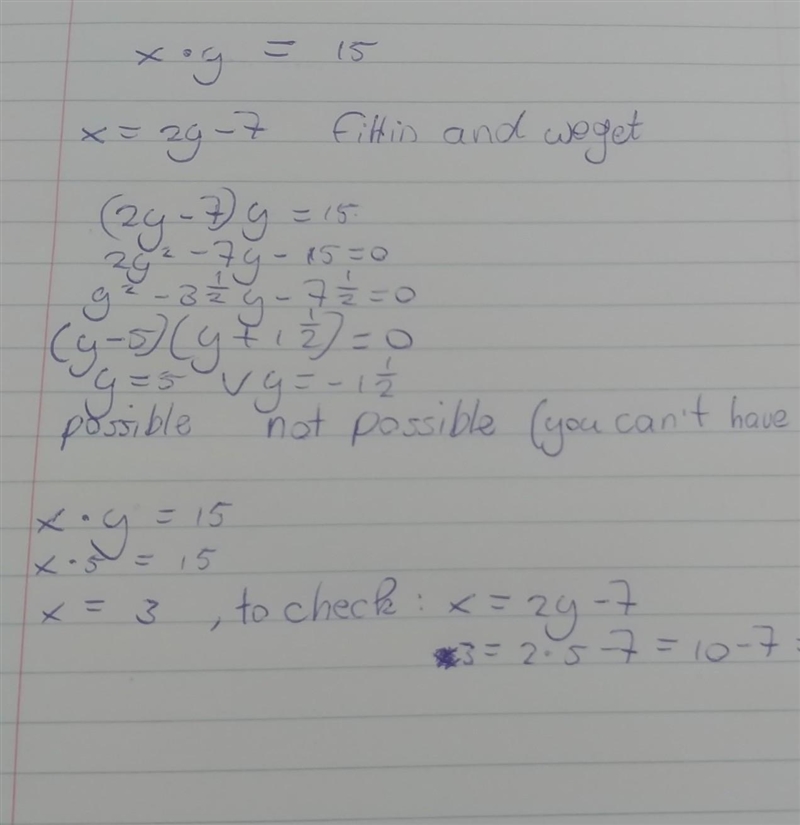 x · y = 15
x = 2y - 7 fillin and weget
(2y - 7)y = 15
2y² - 7y - 15 = 0
y² - 3 1/2 y - 7 1/2 = 0
(y - 5)(y + 1 1/2) = 0
y = 5 ∨ y = -1 1/2
possible not possible (you can't have
x · y = 15
x · 5 = 15
x = 3 , to check : x = 2y - 7
3 = 2 · 5 - 7 = 10 - 7 =